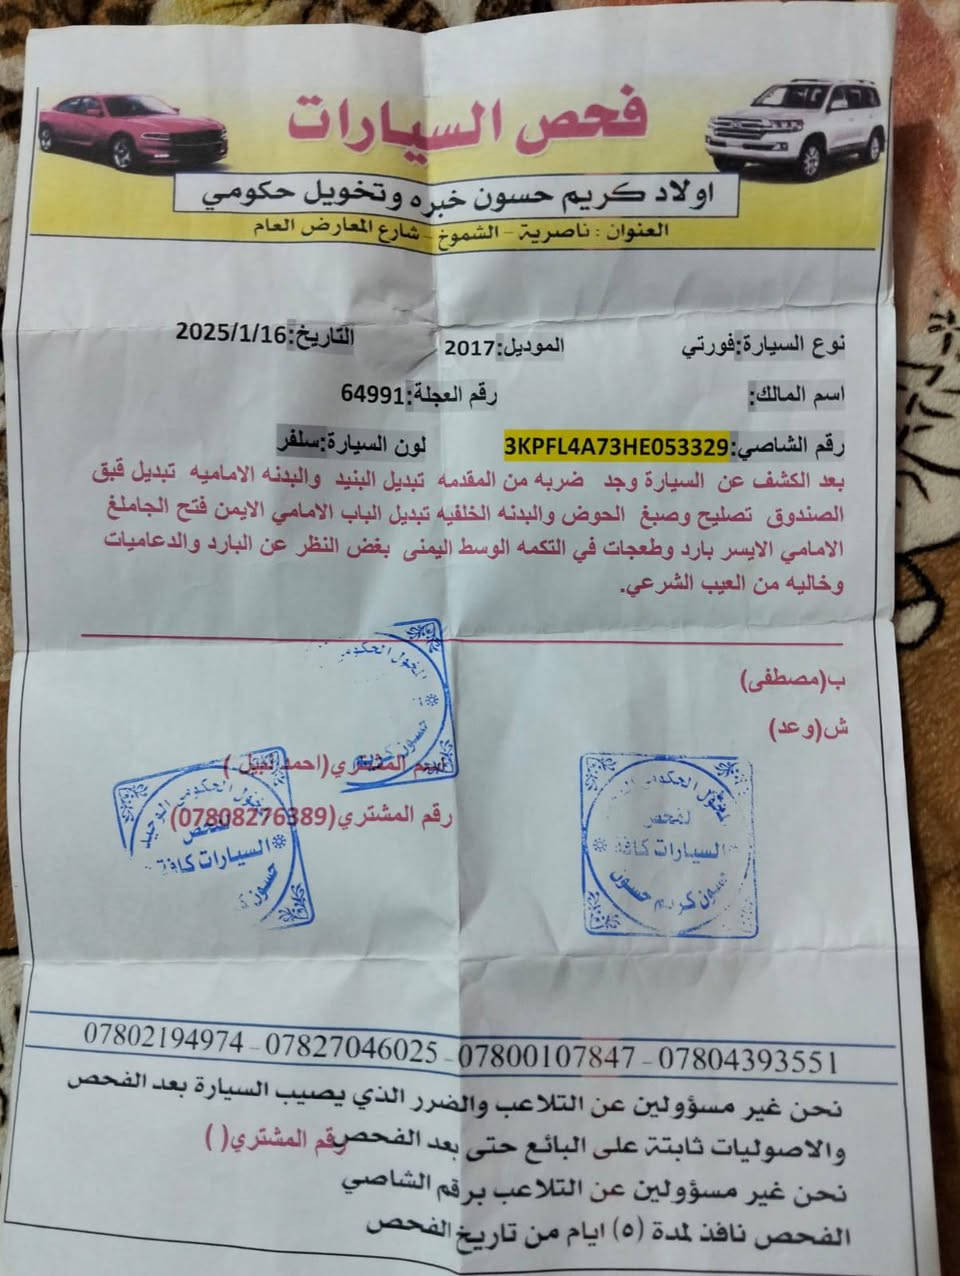 فحص السيارات
اولاد كريم حسون خبره وتخويل حكومي
العنوان : ناصرية - الشموخ - شارع المعارض العام
نوع السيارة:فورتي الموديل:2017 التاريخ:2025/1/16
اسم المالك: رقم العجلة:64991
رقم الشاصي:3KPFL4A73HE053329 لون السيارة:سلفر
بعد الكشف عن السيارة وجد ضربه من المقدمه تبديل البنيد والبدنه الاماميه تبديل قبق
الصندوق تصليح وصبغ الحوض والبدنه الخلفيه تبديل الباب الامامي الايمن فتح الجاملغ
الامامي الايسر بارد وطعجات في التكمه الوسط اليمنى بغض النظر عن البارد والدعاميات
وخاليه من العيب الشرعي.
ب(مصطفى)
ش(وعد)
اسم المشتري(احمد نبيل )
رقم المشتري(07808276389)
المخول الحكومي
حسون
المخول الحكومي الوحيد
لفحص
السيارات كافة
حسون
المخول الحكومي
لفحص
السيارات كافة
كريم حسون
07802194974 - 07827046025 - 07800107847 - 07804393551
نحن غير مسؤولين عن التلاعب والضرر الذي يصيب السيارة بعد الفحص
والاصوليات ثابتة على البائع حتى بعد الفحص
رقم المشتري( )
نحن غير مسؤولين عن التلاعب برقم الشاصي
الفحص نافذ لمدة (٥) ايام من تاريخ الفحص